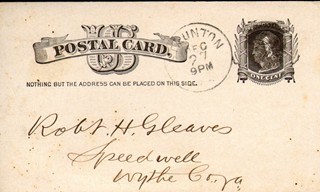 UNTON
DEC
27
9PM
U S
POSTAL CARD.
ONE CENT
NOTHING BUT THE ADDRESS CAN BE PLACED ON THIS SIDE.
Robt. H. Gleaves
Speedwell
Wythe Co. Va